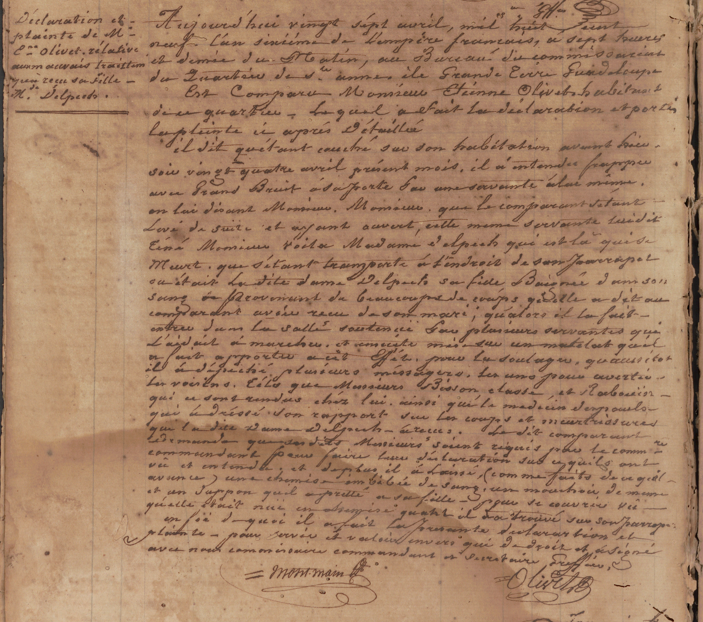 Déclaration et
plainte de M.
Olivet, relative
aux mauvais traitem
que reçu sa fille
M.e Delpech.
Aujourd'hui vingt sept avril, mil huit cent
neuf l'an sixième de l'empire français, à sept heures
et demie du matin, au Bureau du commissariat
du Quartier de S.te anne, ile Grande Terre Guadeloupe
Est Comparu Monsieur Etienne Olivet habitant
de ce quartier, Lequel a fait la déclaration et porté
la plainte ci après Détaillée
il dit qu'étant couché sur son habitation avant hier
soir vingt quatre avril présent mois, il a entendu frapper
avec Grand Bruit à sa porte par une servante à lui même,
en lui disant Monsieur, Monsieur, que le comparant s'étant
Levé de suite et ayant ouvert, cette même servante lui dit
Tené Monsieur voila Madame delpech qui est là qui se
Meurt, que s'étant transporté à l'endroit de son
était La dite dame Delpech sa fille Baignée dans son
sang Provenant de beaucoup de coups qu'elle a dit au
comparant avoir recu de son mari, qu'alors il la fait
entrer dans la salle soutenue par plusieurs servantes qui
L'aidait à marcher, et ensuite mise sur un matelat qu'il
a fait apporter à cet Effet, pour la soulager, qu'aussitot
il a dépéché plusieurs messagers, les uns pour avertir
les voisins, Tels que Messieurs Bisson classe et
qui se sont rendus chez lui, ainsi que le médecin
qui a dréssé son rapport sur les coups et meurtrissures
que la dite Dame Delpech a reçus. Le dit comparant
demande que Messieurs soient requis par le comm.re
commandant pour faire leur déclaration sur ce qu'ils ont
vu et entendu, et de plus il a laissé (comme faits de ce qu'il
avance) une chemise de sang, un mouchoir de même
et un Juppon qu'il a prété à sa fille pour se couvrir vu
qu'elle était nue quand il l'a trouvé sur son
en foi de quoi il a fait la presente déclaration et
plainte pour servir et valoir envers qui de droit et a signé
avec nous commissaire commandant et secretaire Greffier
Montmain
Olivet